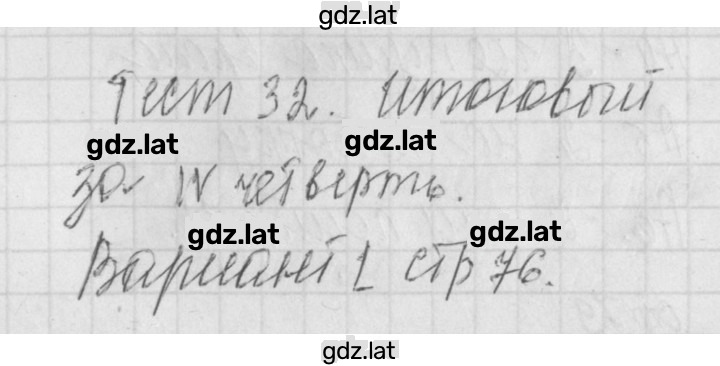 gdz.lat
Тест 32. Итоговый
gdz.lat gdz.lat
за IV четверть.
gdz.lat gdz.lat
Вариант 1 стр 76.
gdz.lat